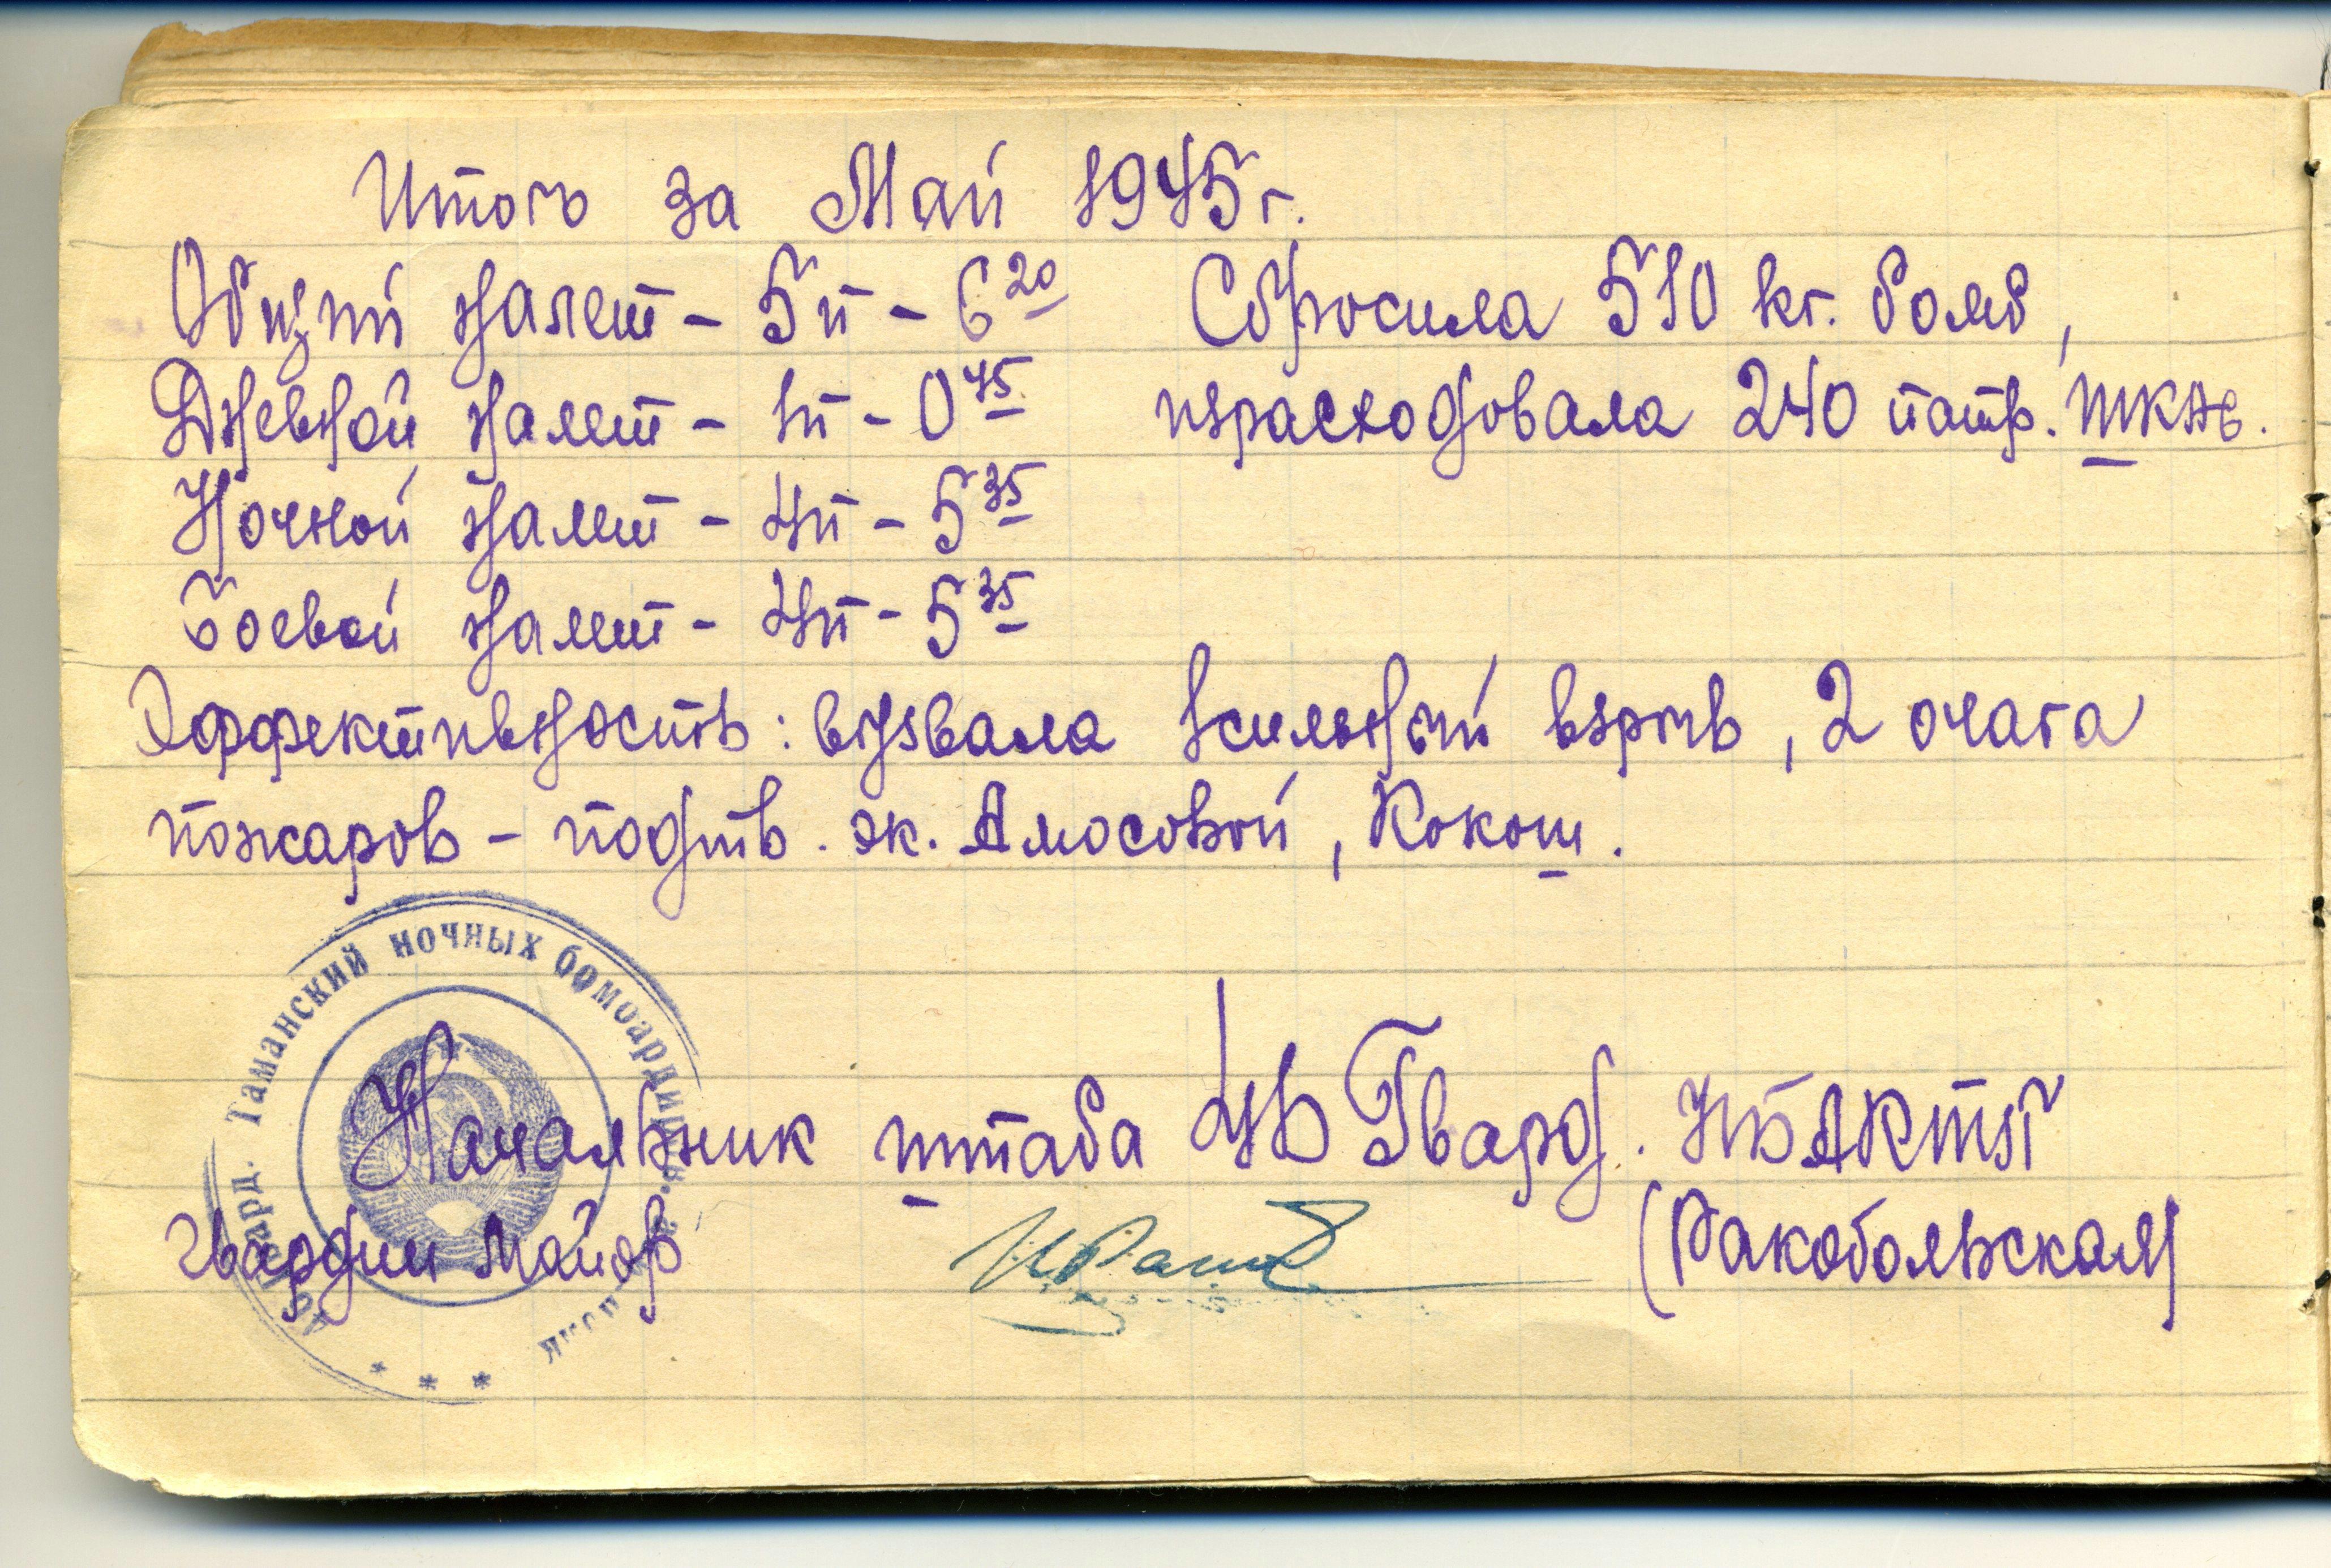 Итого за Май 1945г.
Общий налет - 5п - 6 20
Дневной налет - 1п - 0 45
Ночной налет - 4п - 5 35
Боевой налет - 4п - 5 35
Сбросила 510 кг. бомб,
израсходовала 240 патр. ШКАС.
Эффективность: вызвала 1сильный взрыв, 2 очага
пожаров - подтв. эк. Амосовой, Кокош.
Таманский ночных бомбардир
Начальник штаба 46 Гвард. НБАКТП
гвардии майор
(Ракобольская)